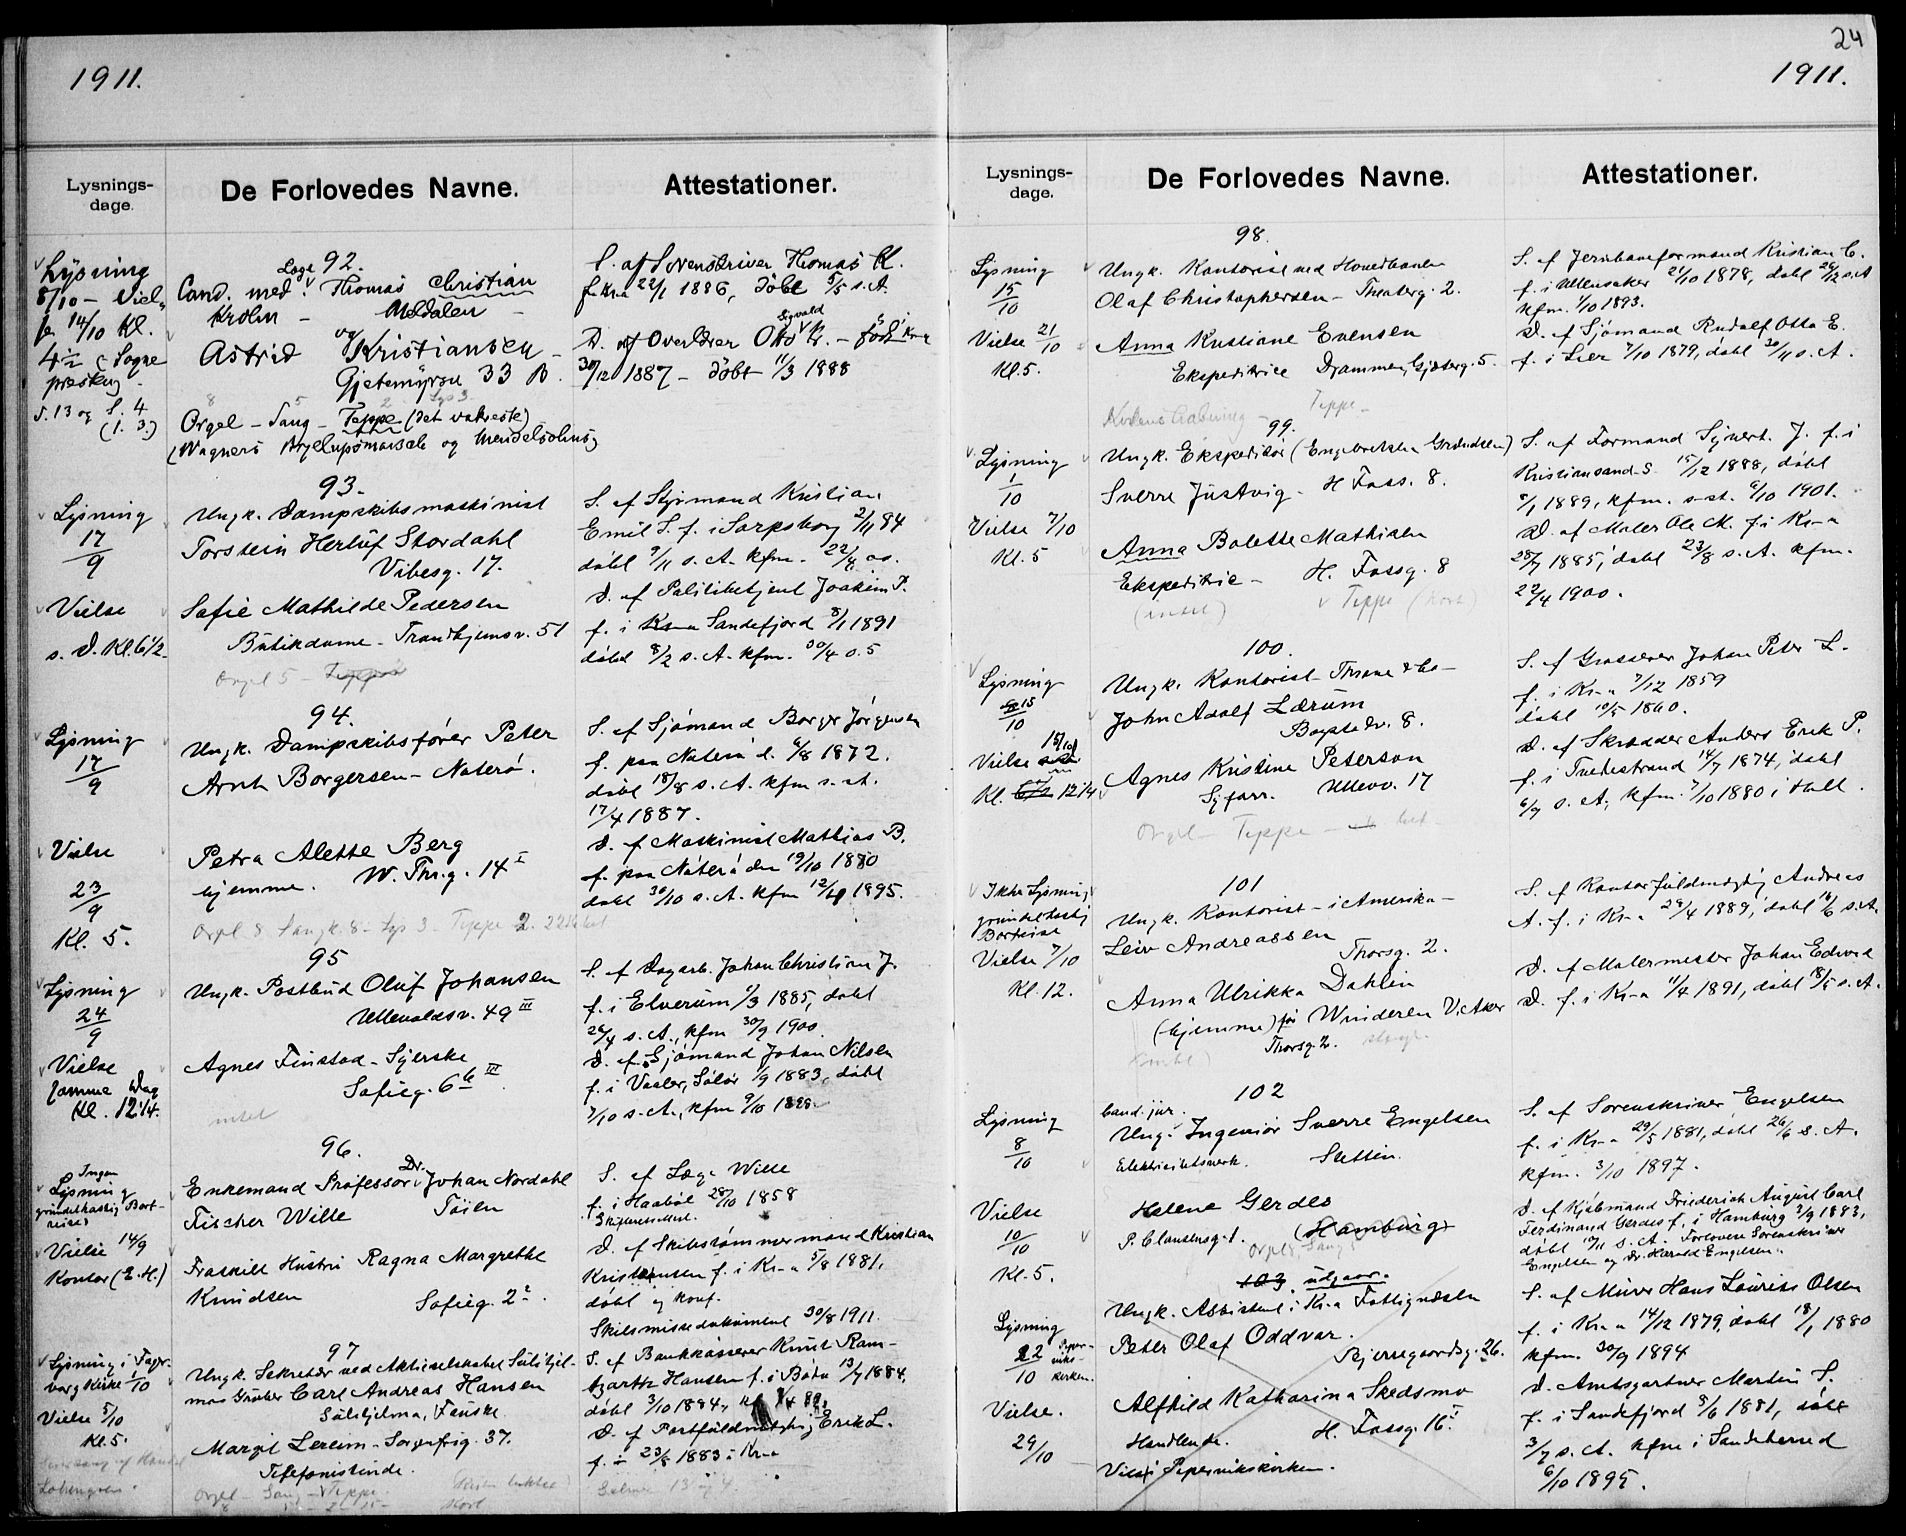 1911.
Lysnings-
dage.
De Forlovedes Navne.
Attestationer.
92.
Lysning
8/10 - Viel
fr 14/10 Kl.
4 1/2 i Sogne
Læge
Cand. med. Thomas Christian
Krohn - Meldalen -
og
Astrid Kristiansen -
Gjetemyrsv. 33 B.
Orgel - Sang - Teppe (det vakreste)
(Wagners Bryllupsmarsch og Mendelsohns)
S. af Sorenskriver Thomas K.
f. Kr.a 22/1 1886, døbt 5/5 s.A.
Sigvald
D. af Overlærer Otto K. - født Kra
30/12 1887 - døbt 11/3 1888
93.
Lysning
17
9
Vielse
s. D. Kl. 6 1/2
Ungk. Dampskibsmaskinist
Torstein Herluf Stordahl
Vibesg. 17.
Sofie Mathilde Pedersen
Butikdame - Trondhjemsv. 51
Orgel 5 -
S. af Styrmand Kristian
Emil S. f. i Sarpsborg 2/11 84
døbt 9/11 s. A. kfm. 22/4 00.
D. af Politibetjent Joakim P.
f. i Sandefjord 8/1 1891
døbt 8/2 s. A. kfm. 30/4 05
94.
Lysning
17
9
Vielse
23
9
Kl. 5.
Ungk. Dampskibsfører Peter
Arnt Borgersen - Nøterø.
Petra Alette Berg
hjemme. W. Thr.g. 14 I
S. af Sjømand Borger Jørgensen
f. paa Nøterø d. 6/8 1872.
døbt 18/8 s. A. kfm s. st.
17/4 1887.
D. af Maskinist Mathias B.
f. paa Nøterø den 19/10 1880
døbt 30/10 s. A. kfm 1895.
95
Lysning
24
9
Vielse
samme Dag
Kl. 12 1/4.
Ungk. Postbud Oluf Johansen
Ullevoldsv. 49 III
Agnes Finstad - Syerske
Sofieg. 6 b III
intet
S. af Dagarb. Johan Christian J.
f. i Elverum 1/3 1885, døbt
26/4 s. A., kfm 30/9 1900.
D. af Sjømand Johan Nilsen
f. i Vaaler, Solør 1/9 1883, døbt
7/10 s. A., kfm 9/10 1898
96.
Ingen
Lysning
grundet hastig Bort-
reise
Vielse 14/9
Kontor (E. H.)
Dr.
Enkemand Professor Johan Nordahl
Fischer Wille Tøien
Fraskilt Hustru Ragna Margrethe
Knudsen Sofieg. 2
S. af Læge Wille
f. i Haabøl 28/10 1858
D. af Skibstømmermand Kristian
Kristiansen f. i Kr-a 5/8 1881.
døbt og konf.
Skilsmissedokument 30/8 1911.
97
Lysning i Fager-
borg Kirke 1/10
Vielse 5/10
Kl. 5.
Ungk. Sekretær ved Aktieselskabet Sulitjel-
ma Gruber Carl Andreas Hansen
Sulitjelma, Fauske.
Margit Lereim - Sorgenfrig. 37.
Telefonistinde.
S. af Bankkasserer Knut Ram-
Hansen f. i Bodø 13/7 1884,
døbt 3/10 1884,
D. af Postfuldmægtig Erik L.
f. 23/8 1883 i Kr-a
24
1911.
Lysnings-
dage.
De Forlovedes Navne.
Attestationer.
98.
Lysning
15
10
Vielse 21/10
Kl. 5.
Ungk. Kontorist ved Hovedbanen
Olaf Christophersen - Theaterg. 2.
Anna Kristiane Evensen
Ekspeditrice Drammen, 5.
Teppe -
S. af Jernbaneformand Kristian C.
f. i Ullensaker 21/10 1878, døbt 26/12 s.A
kfm. 1/10 1893.
D. af Sjømand Rudolf Otto E.
f. i Lier 7/10 1879, døbt 30/11 s. A.
99.
Lysning
1
10
Vielse 7/10
Kl. 5
Ungk. Ekspeditør (Engebretsen Grændsen)
Sverre Justvig - H Foss. 8.
Anna Bolette Mathisen
Ekspeditrice - H. Fossg. 8
(intet) Teppe (kort)
S. af Formand Syvert. J. f. i
Kristiansand S. 15/12 1888, døbt
1889, kfm. s. st. 6/10 1901.
D. af Maler Ole M. f. i Kr-a
28/7 1885, døbt 23/8 s. A. kfm.
22/4 1900.
100.
Lysning
15
10
Vielse 15/10
Kl. 12 1/4
Ungk. Kontorist - Throne & Co -
John Adolf Lærum
Bogstadv. 8.
Agnes Kristine Peterson
Syforr. Ullevv. 17
Orgel - Teppe -
S. af Grosserer Johan Peter L.
f. i Kr-a 7/12 1859
døbt 10/5 1860.
D. af Skrædder Anders Erik P.
f. i Tvedestrand 14/7 1874, døbt
6/9 s. A, kfm. 7/10 1880 i
101
Ikke Lysning
grundet hastig
Bortreise
Vielse 7/10
Kl. 12.
Ungk. Kontorist - i Amerika -
Leiv Andreassen
Thorsg. 2.
Anna Ulrikka Dahlin
(hjemme) før Winderen V. Aker
Thorsg. 2.
(intet)
S. af Kontorfuldmægtig Andreas
A. f. i Kr-a 29/4 1889, døbt 16/6 s. A.
D. af Malermester Johan Edvard
D. f. i Kr-a 11/4 1891, døbt 18/5 s. A.
102
Lysning
8
10
Vielse
10
10
Kl. 5.
Cand. jur.
Ung. Ingeniør Sverre Engelsen
Elektricitetsverk. Stettin.
Helene Gerdes
P. Clausensg. 1. (Hamburg)
Orgel 8, Sang 5
S. af Sorenskriver Engelsen
f. i Kr-a 29/5 1881, døbt 26/6 s. A.
kfm. 3/10 1897.
D. af Kjøbmand Friederich August Carl
Ferdinand Gerdes f. i Hamburg 2/9 1883,
døbt 10/11 s. A. Forlovere Sorenskriver
Engelsen og Dr. Harald Engelsen.
103. udgaar.
Lysning
22
10
Piper-
viks-
kirken.
Vielse.
29/10
Ungk. Assistent i Kr.a Fattigvæsen
Peter Olaf Oddvar.
Bjerregaardsg. 26.
Alfhild Katharina Skedsmo
Handlende. H. Fossg. 16 I
Vies i Pipervikskirken.
S. af Murer Hans Laurits Olsen
f. i Kr-a 14/12 1879, døbt 18/1 1880
kfm. 30/9 1894
D. Amtsgartner Martin S.
f. i Sandefjord 8/6 1881, døbt
3/7 s. A. kfm i Sandeherred
6/10 1895.